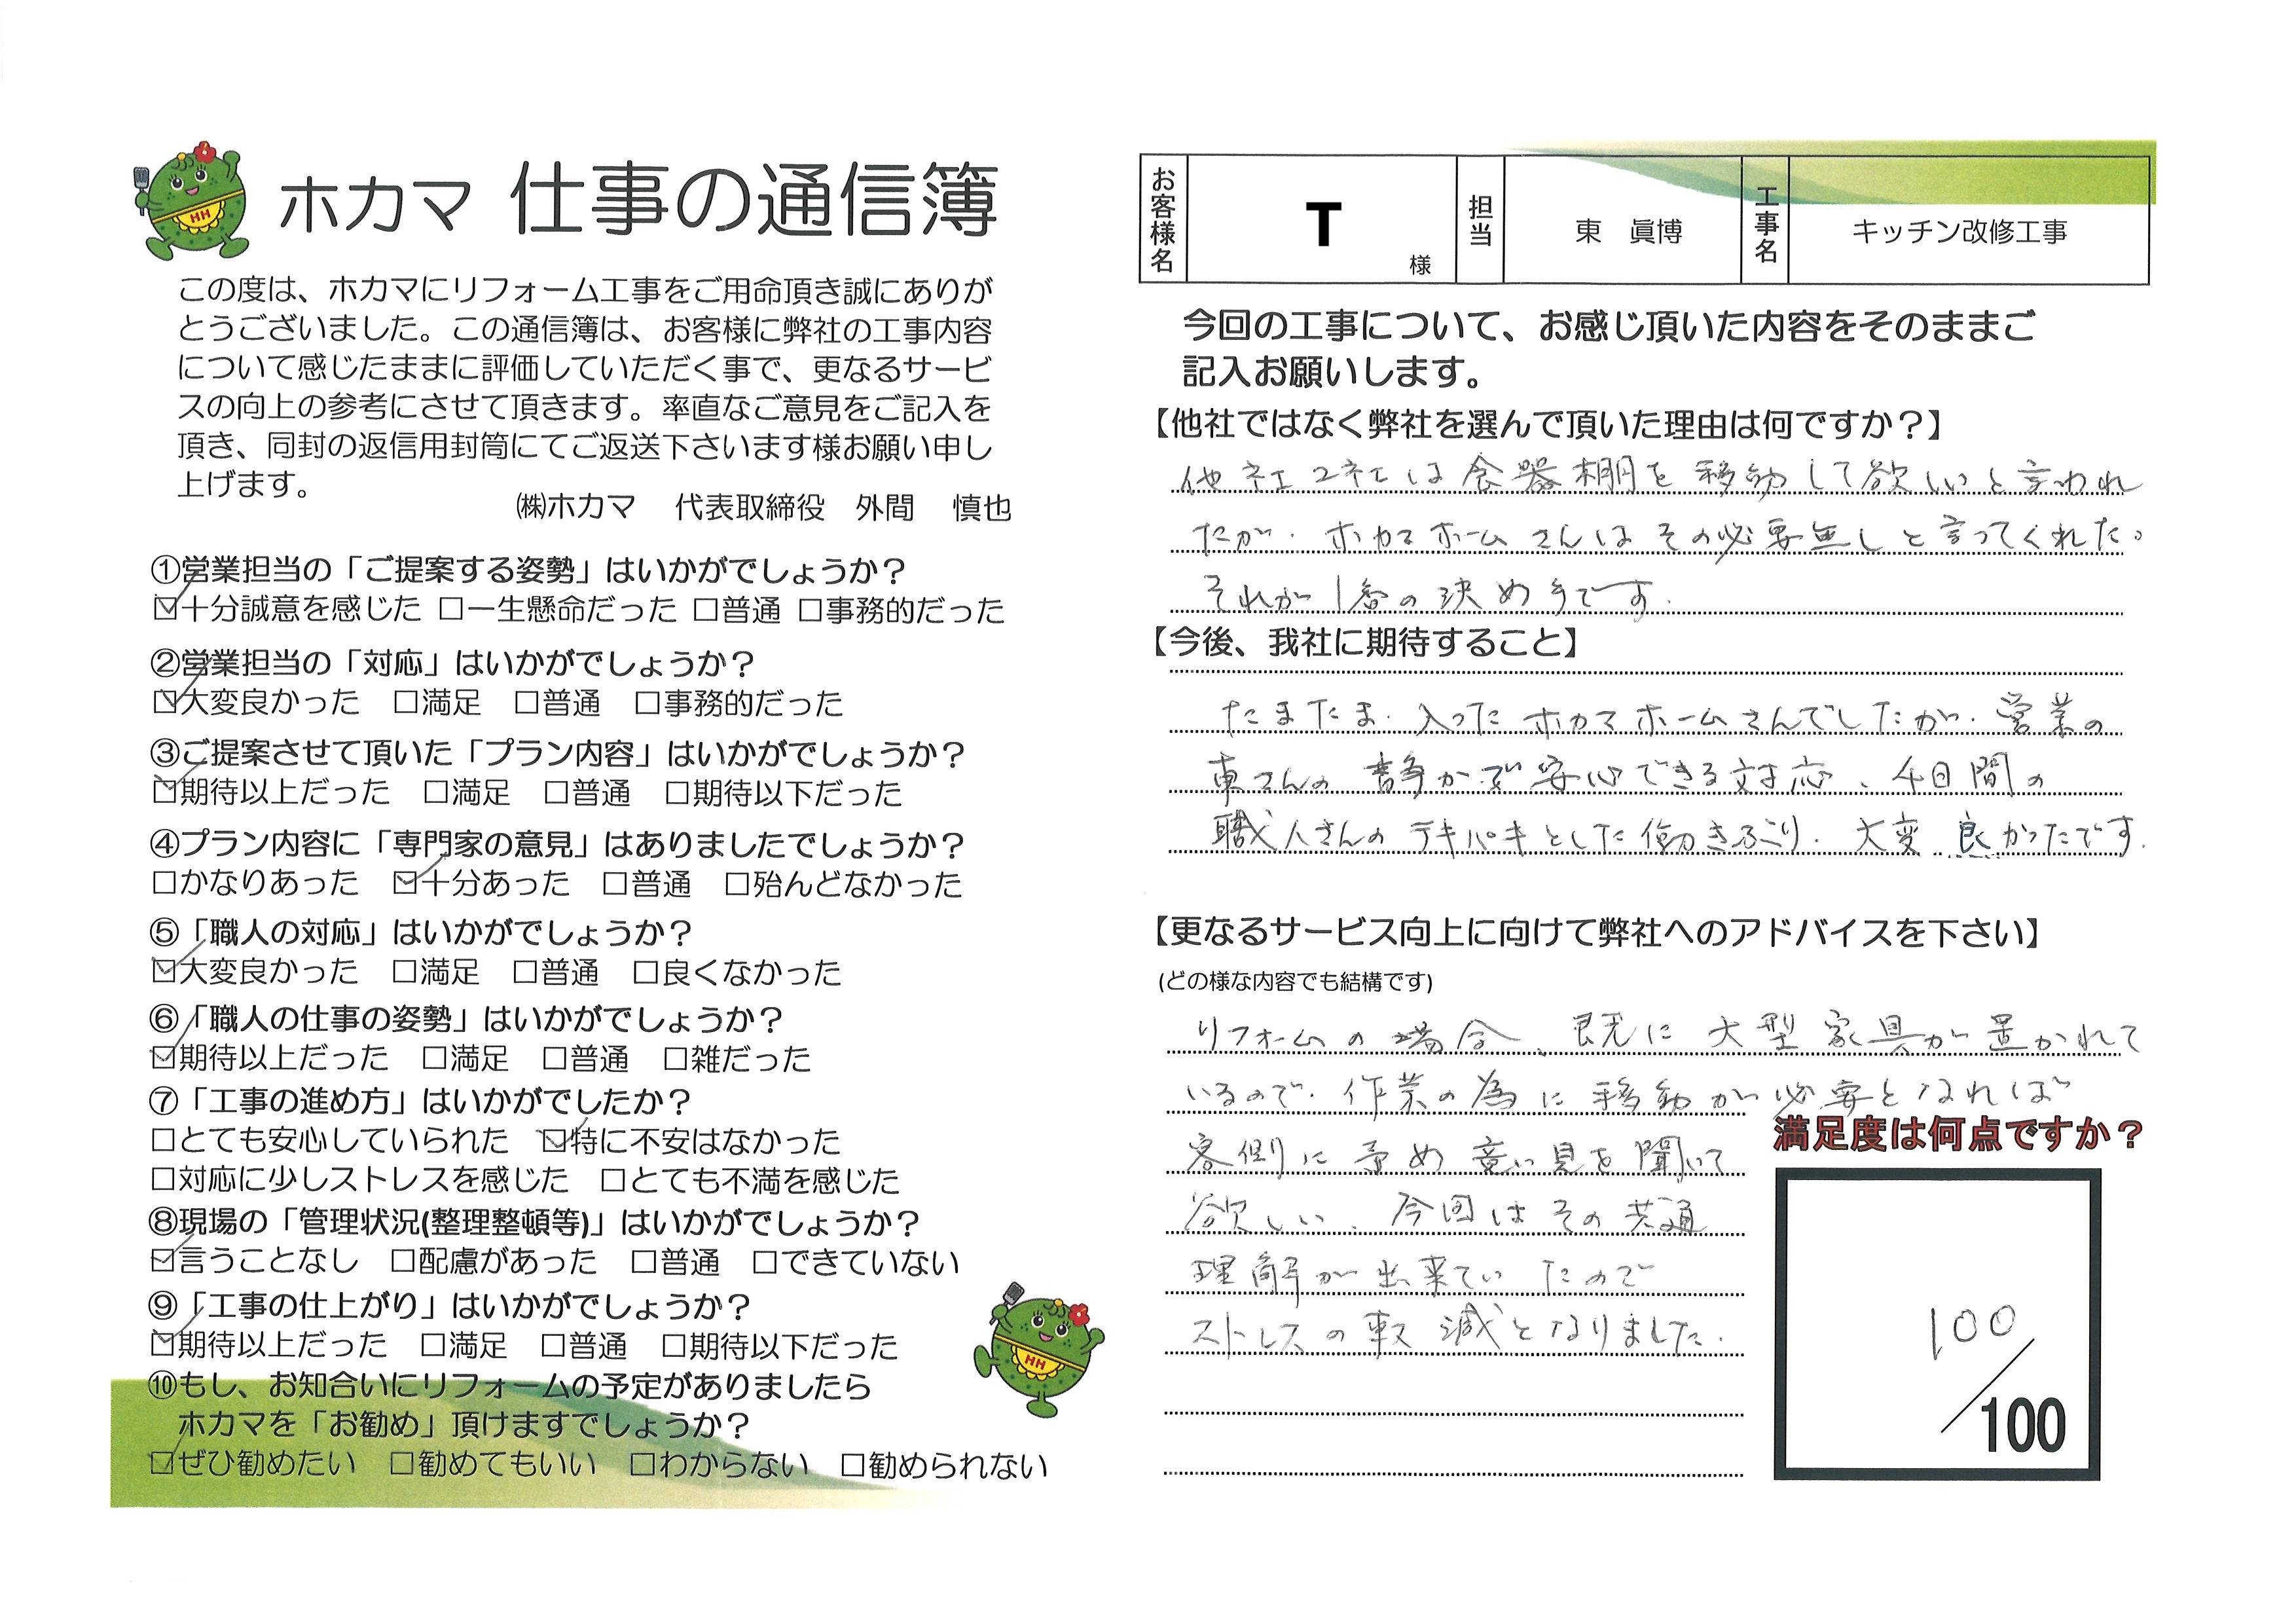 ホカマ 仕事の通信簿
この度は、ホカマにリフォーム工事をご用命頂き誠にありが
とうございました。この通信簿は、お客様に弊社の工事内容
について感じたままに評価していただく事で、更なるサービ
スの向上の参考にさせて頂きます。率直なご意見をご記入を
頂き、同封の返信用封筒にてご返送下さいます様お願い申し
上げます。
㈱ホカマ 代表取締役 外間 慎也
①営業担当の「ご提案する姿勢」はいかがでしょうか？
☑十分誠意を感じた □一生懸命だった □普通 □事務的だった
②営業担当の「対応」はいかがでしょうか？
☑大変良かった □満足 □普通 □事務的だった
③ご提案させて頂いた「プラン内容」はいかがでしょうか？
☑期待以上だった □満足 □普通 □期待以下だった
④プラン内容に「専門家の意見」はありましたでしょうか？
□かなりあった ☑十分あった □普通 □殆んどなかった
⑤「職人の対応」はいかがでしょうか？
☑大変良かった □満足 □普通 □良くなかった
⑥「職人の仕事の姿勢」はいかがでしょうか？
☑期待以上だった □満足 □普通 □雑だった
⑦「工事の進め方」はいかがでしたか？
□とても安心していられた ☑特に不安はなかった
□対応に少しストレスを感じた □とても不満を感じた
⑧現場の「管理状況(整理整頓等)」はいかがでしょうか？
☑言うことなし □配慮があった □普通 □できていない
⑨「工事の仕上がり」はいかがでしょうか？
☑期待以上だった □満足 □普通 □期待以下だった
⑩もし、お知合いにリフォームの予定がありましたら
ホカマを「お勧め」頂けますでしょうか？
☑ぜひ勧めたい □勧めてもいい □わからない □勧められない
HH
HH
お客様名 T 様 担当 東 眞博 工事名 キッチン改修工事
今回の工事について、お感じ頂いた内容をそのままご
記入お願いします。
【他社ではなく弊社を選んで頂いた理由は何ですか？】
他社2社は食器棚を移動して欲しいと言われ
たが、ホカマホームさんはその必要無しと言ってくれた。
それが1番の決め手です.
【今後、我社に期待すること】
たまたま、入ったホカマホームさんでしたが、営業の
東さんの静かで安心できる対応、4日間の
職人さんのテキパキとした働きぶり、大変良かったです.
【更なるサービス向上に向けて弊社へのアドバイスを下さい】
(どの様な内容でも結構です)
リフォームの場合、既に大型家具が置かれて
いるので、作業の為に移動が必要となれば
客側に予め意見を聞いて
欲しい、今回はその共通
理解が出来ていたので
ストレスの軽減となりました.
満足度は何点ですか？
100
/100